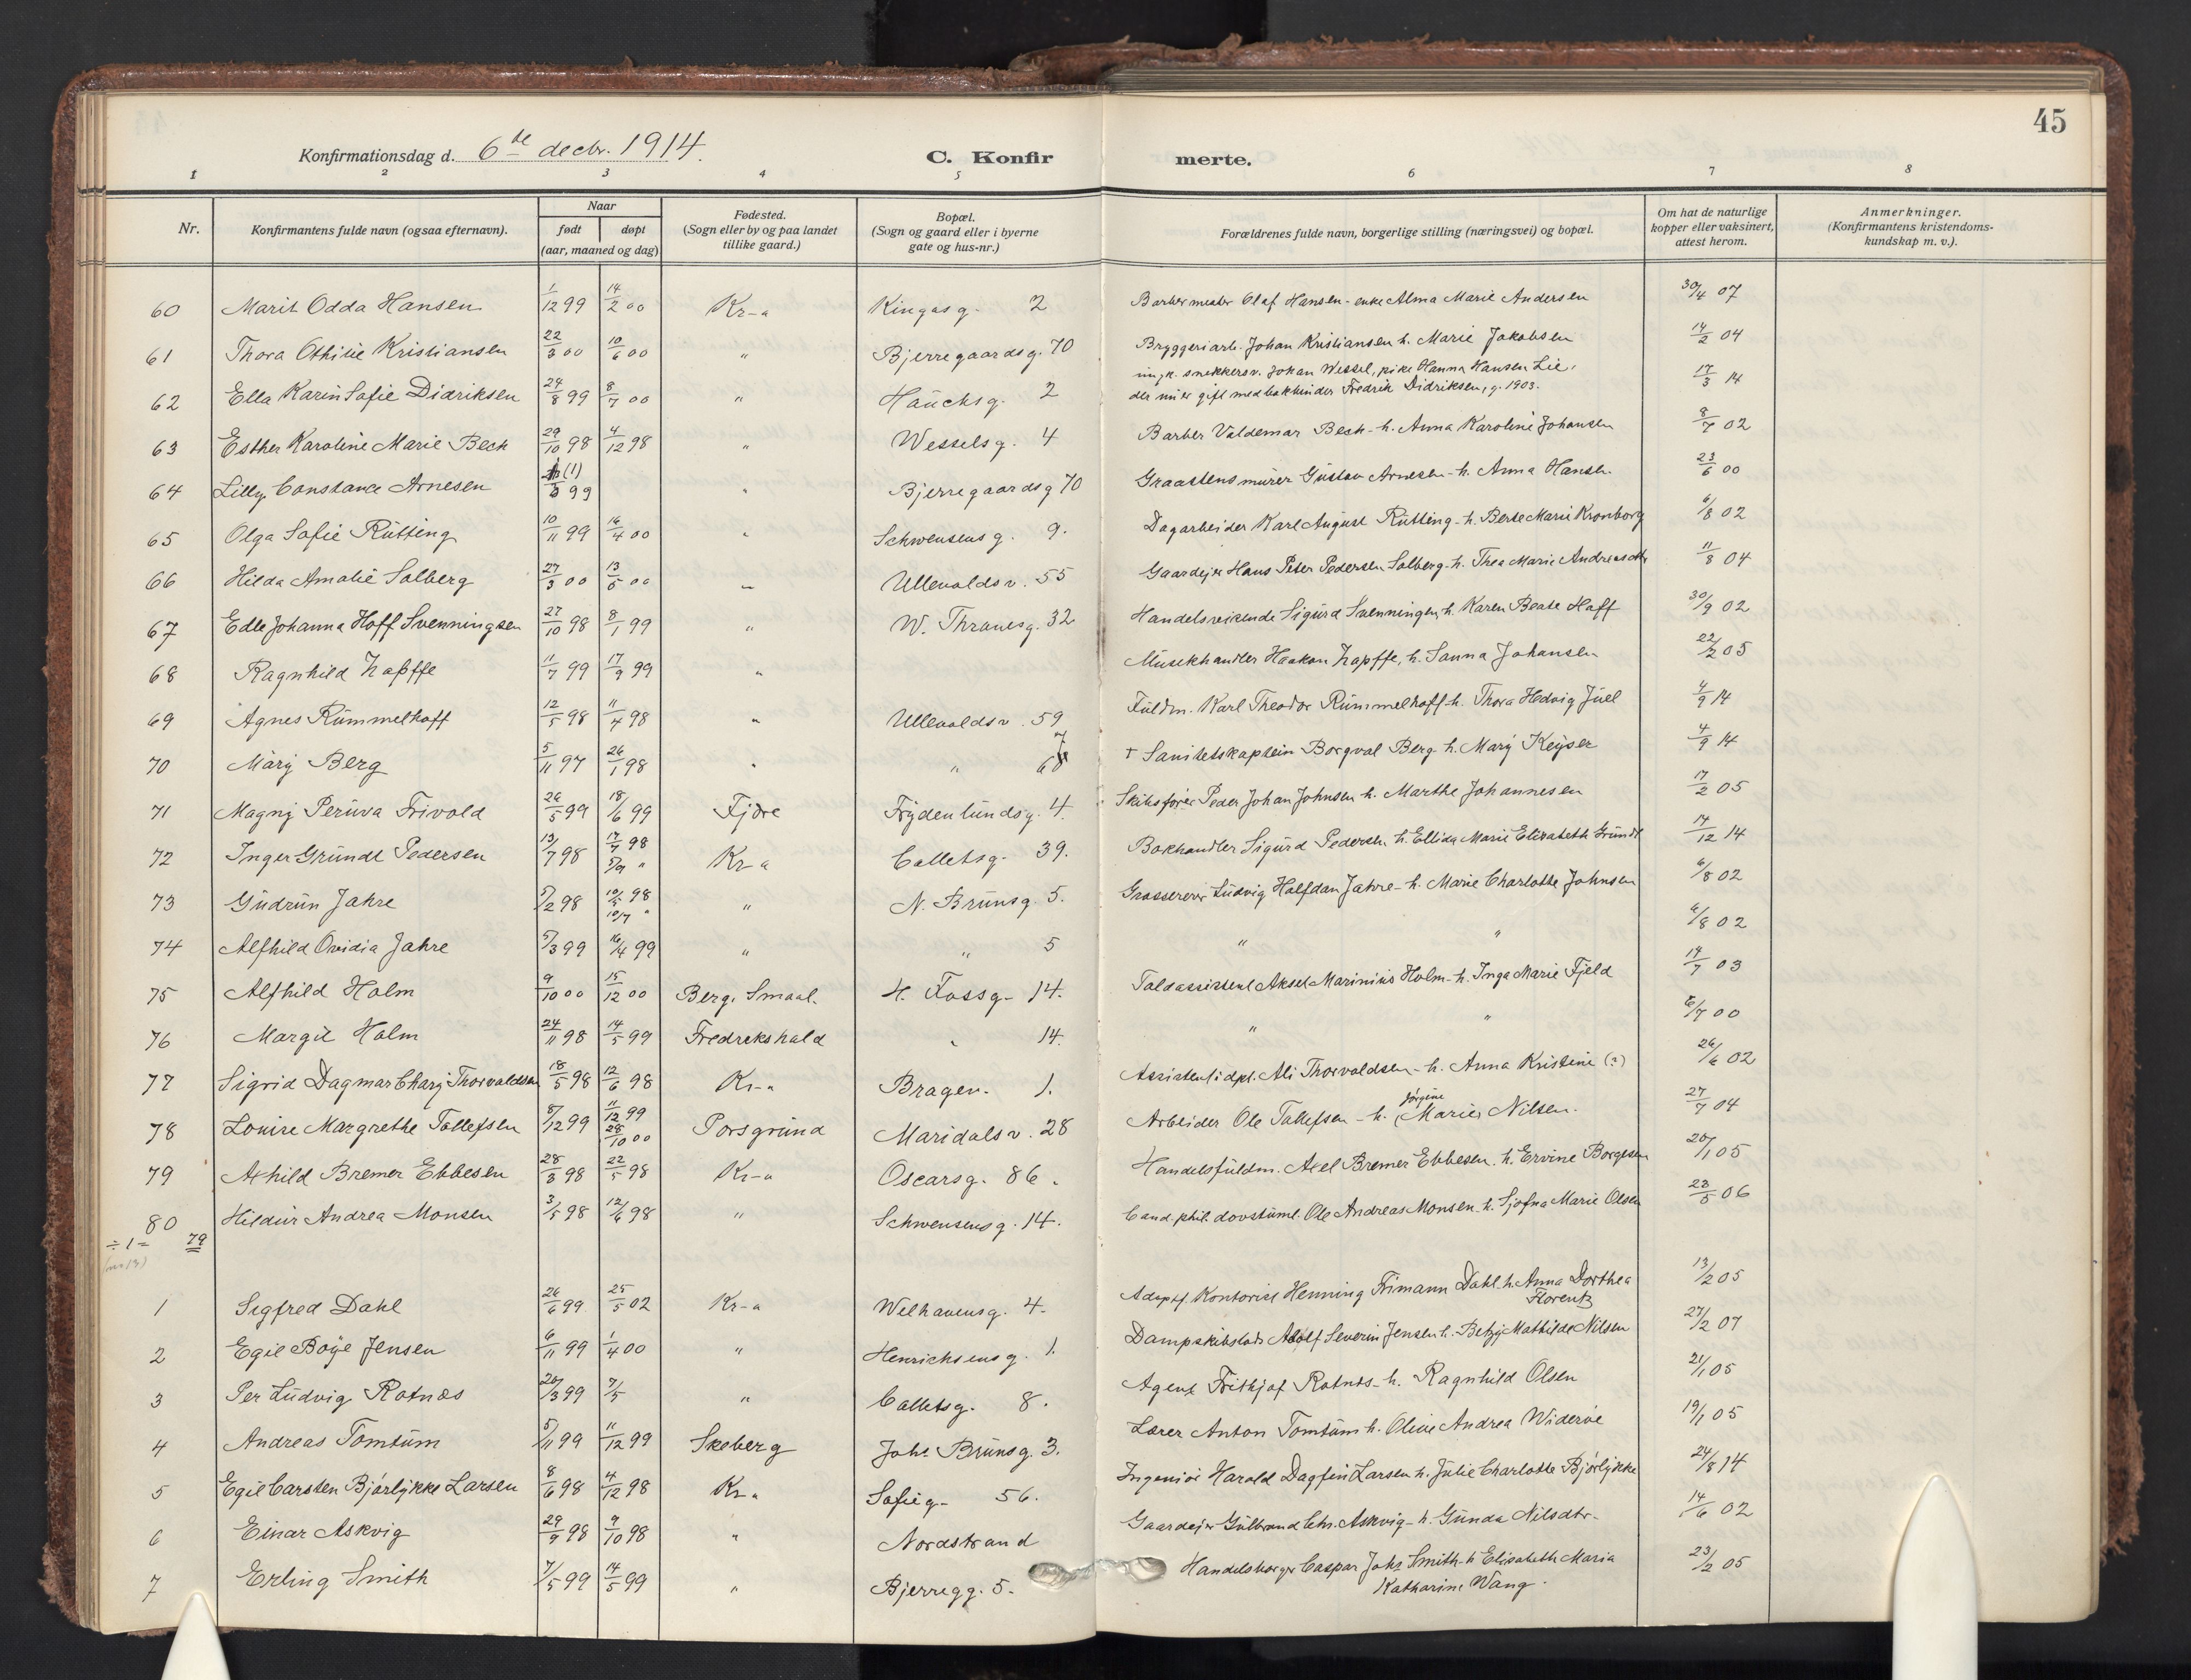 45
Konfirmationsdag d. 6te decbr. 1914.
C. Konfirmerte.
1 2 3 4 5 6 7 8
Nr.
Konfirmantens fulde navn (ogsaa efternavn).
Naar
født
døpt
(aar, maaned og dag)
Fødested.
(Sogn eller by og paa landet
tillike gaard.)
Bopæl.
(Sogn og gaard eller i byerne
gate og hus-nr.)
Forældrenes fulde navn, borgerlige stilling (næringsvei) og bopæl.
Om hat de naturlige
kopper eller vaksinert,
attest herom.
Anmerkninger.
(Konfirmantens kristendoms-
kundskap m. v.).
60 Marit Odda Hansen 1/12 99 14/2 00 Kr-a Kingosg. 2 Barbermester Olaf Hansen - enke Alma Marie Andersen 30/4 07
61 Thora Othilie Kristiansen 22/3 00 10/6 00 " Bjerregaardsg. 70 Bryggeriarb. Johan Kristiansen h. Marie Jakobsen 14/2 04
62 Ella Karin Sofie Didriksen 24/8 99 8/7 00 " Hauchsg. 2 ungk. snekkersv. Johan Wessel, pike Hanna Hansen Lie,
der nu er gift med bokbinder Fredrik Didriksen, g. 1903. 17/3 14
63 Esther Karoline Marie Beck 29/10 98 4/12 98 " Wesselsg. 4 Barber Valdemar Beck - h. Anna Karoline Johansen 8/7 02
64 Lilly Constance Arnesen (1)/3 99 " Bjerregaardsg 70 Graastensmurer Gustav Arnesen - h. Anna Hansen 23/6 00
65 Olga Sofie Rütting 10/11 99 16/4 00 " Schwensensg. 9. Dagarbeider Karl August Rütting - h. Berte Marie Kronborg 6/8 02
66 Hilda Amalie Solberg 27/3 00 13/5 00 " Ullevoldsv. 55 Gaardejer Hans Peter Pedersen Solberg - h. Thea Marie Andreasdtr 11/8 04
67 Edle Johanna Hoff Svenningsen 27/10 98 8/1 99 " W. Thranesg. 32 Handelsreisende Sigurd Svenningsen, h. Karen Beate Hoff 30/9 02
68 Ragnhild Zapffe 11/7 99 17/9 99 " Musikhandler Haakon Zapffe, h. Sanna Johansen 22/2 05
69 Agnes Rummelhoff 12/5 98 11/4 98 " Ullevoldsv. 59 Fuldm. Karl Theodor Rummelhoff - h. Thora Hedvig Juel 4/9 14
70 Mary Berg 5/11 97 26/1 98 " " + Sanitetskaptein Borgval Berg - h. Mary Keyser 4/9 14
71 Magny Peruva Frivold 26/5 99 18/6 99 Fjære Frydenlundsg. 4. Skibsfører Peder Johan Johnsen h. Marthe Johannesen 17/2 05
72 Inger Grundt Pedersen 13/7 98 17/7 98 5/9 " Kr-a Colletsg. 39. Bokhandler Sigurd Pedersen h. Ellida Marie Elizabeth Grundt 17/12 14
73 Gudrun Jahre 5/2 98 10/5 98 10/7 " " N. Brunsg. 5. Grosserer Ludvig Halfdan Jahre - h. Marie Charlotte Johnsen 6/8 02
74 Alfhild Ovidia Jahre 5/3 99 16/4 99 " " 5 " " 6/8 02
75 Alfhild Holm 9/10 00 15/12 00 Berg, Smaal. H. Fossg. 14. Toldassistent Aksel Marinius Holm - h. Inga Marie Fjeld 14/7 03
76 Margit Holm 24/11 98 14/5 99 Fredrikshald " 14. " " 6/7 00
77 Sigrid Dagmar Charj Thorvaldsen 18/5 98 12/6 98 Kr-a Bragev. 1. Assistent i dpt. Ali Thorvaldsen - h. Anna Kristine (?) 26/6 02
78 Louise Margrethe Tollefsen 8/12 99 11/12 99 28/10 00 Porsgrund Maridalsv. 28 Arbeider Ole Tollefsen - h. Jørgine Marie Nilsen. 27/7 04
79 Axhild Bremer Ebbesen 28/3 98 22/5 98 Kr-a Oscarsg. 86. Handelsfuldm. Axel Bremer Ebbesen. h. Ervine Borgesen 20/1 05
80 Hildur Andrea Monsen 3/5 98 12/6 98 " Schwensensg. 14. Cand. phil. døvstuml. Ole Andreas Monsen. h. Sjofna Marie Olsen 23/5 06
÷ 1 = 79
(no 13)
1 Sigfred Dahl 26/6 99 25/5 02 Kr-a Welhavensg. 4. Adoptf. Kontorist Henning Frimann Dahl. h. Anna Dorthea
Florentz 13/2 05
2 Egil Böye Jensen 6/11 99 1/4 00 " Henrichsensg. 1. Dampskibslods Adolf Severin Jensen h. Betzy Mathilde Nilsen 27/2 07
3 Per Ludvig Rotnæs 20/3 99 7/5 " Colletsg. 8. Agent Frithjof Rotnæs - h. Ragnhild Olsen 21/1 05
4 Andreas Tomtum 5/11 99 11/12 99 Skeberg Johs Brunsg. 3. Lærer Anton Tomtum h. Oline Andrea Widerøe 19/1 05
5 Egil Carsten Bjørlykke Larsen 8/6 98 4/12 98 Kr-a Sofieg. 56. Ingeniør Harald Dagfin Larsen h. Julie Charlotte Bjørlykke 24/8 14
6 Einar Askvig 29/9 98 9/10 98 " Nordstrand Gaardejer Gulbrand Chr. Askvig - h. Gunda Nilsdtr. 14/6 02
7 Erling Smith 7/5 99 14/5 99 " Bjerregg. 5. Handelsborger Caspar Johs Smith - h Elisabeth Maria
Katharine Wang. 23/2 05